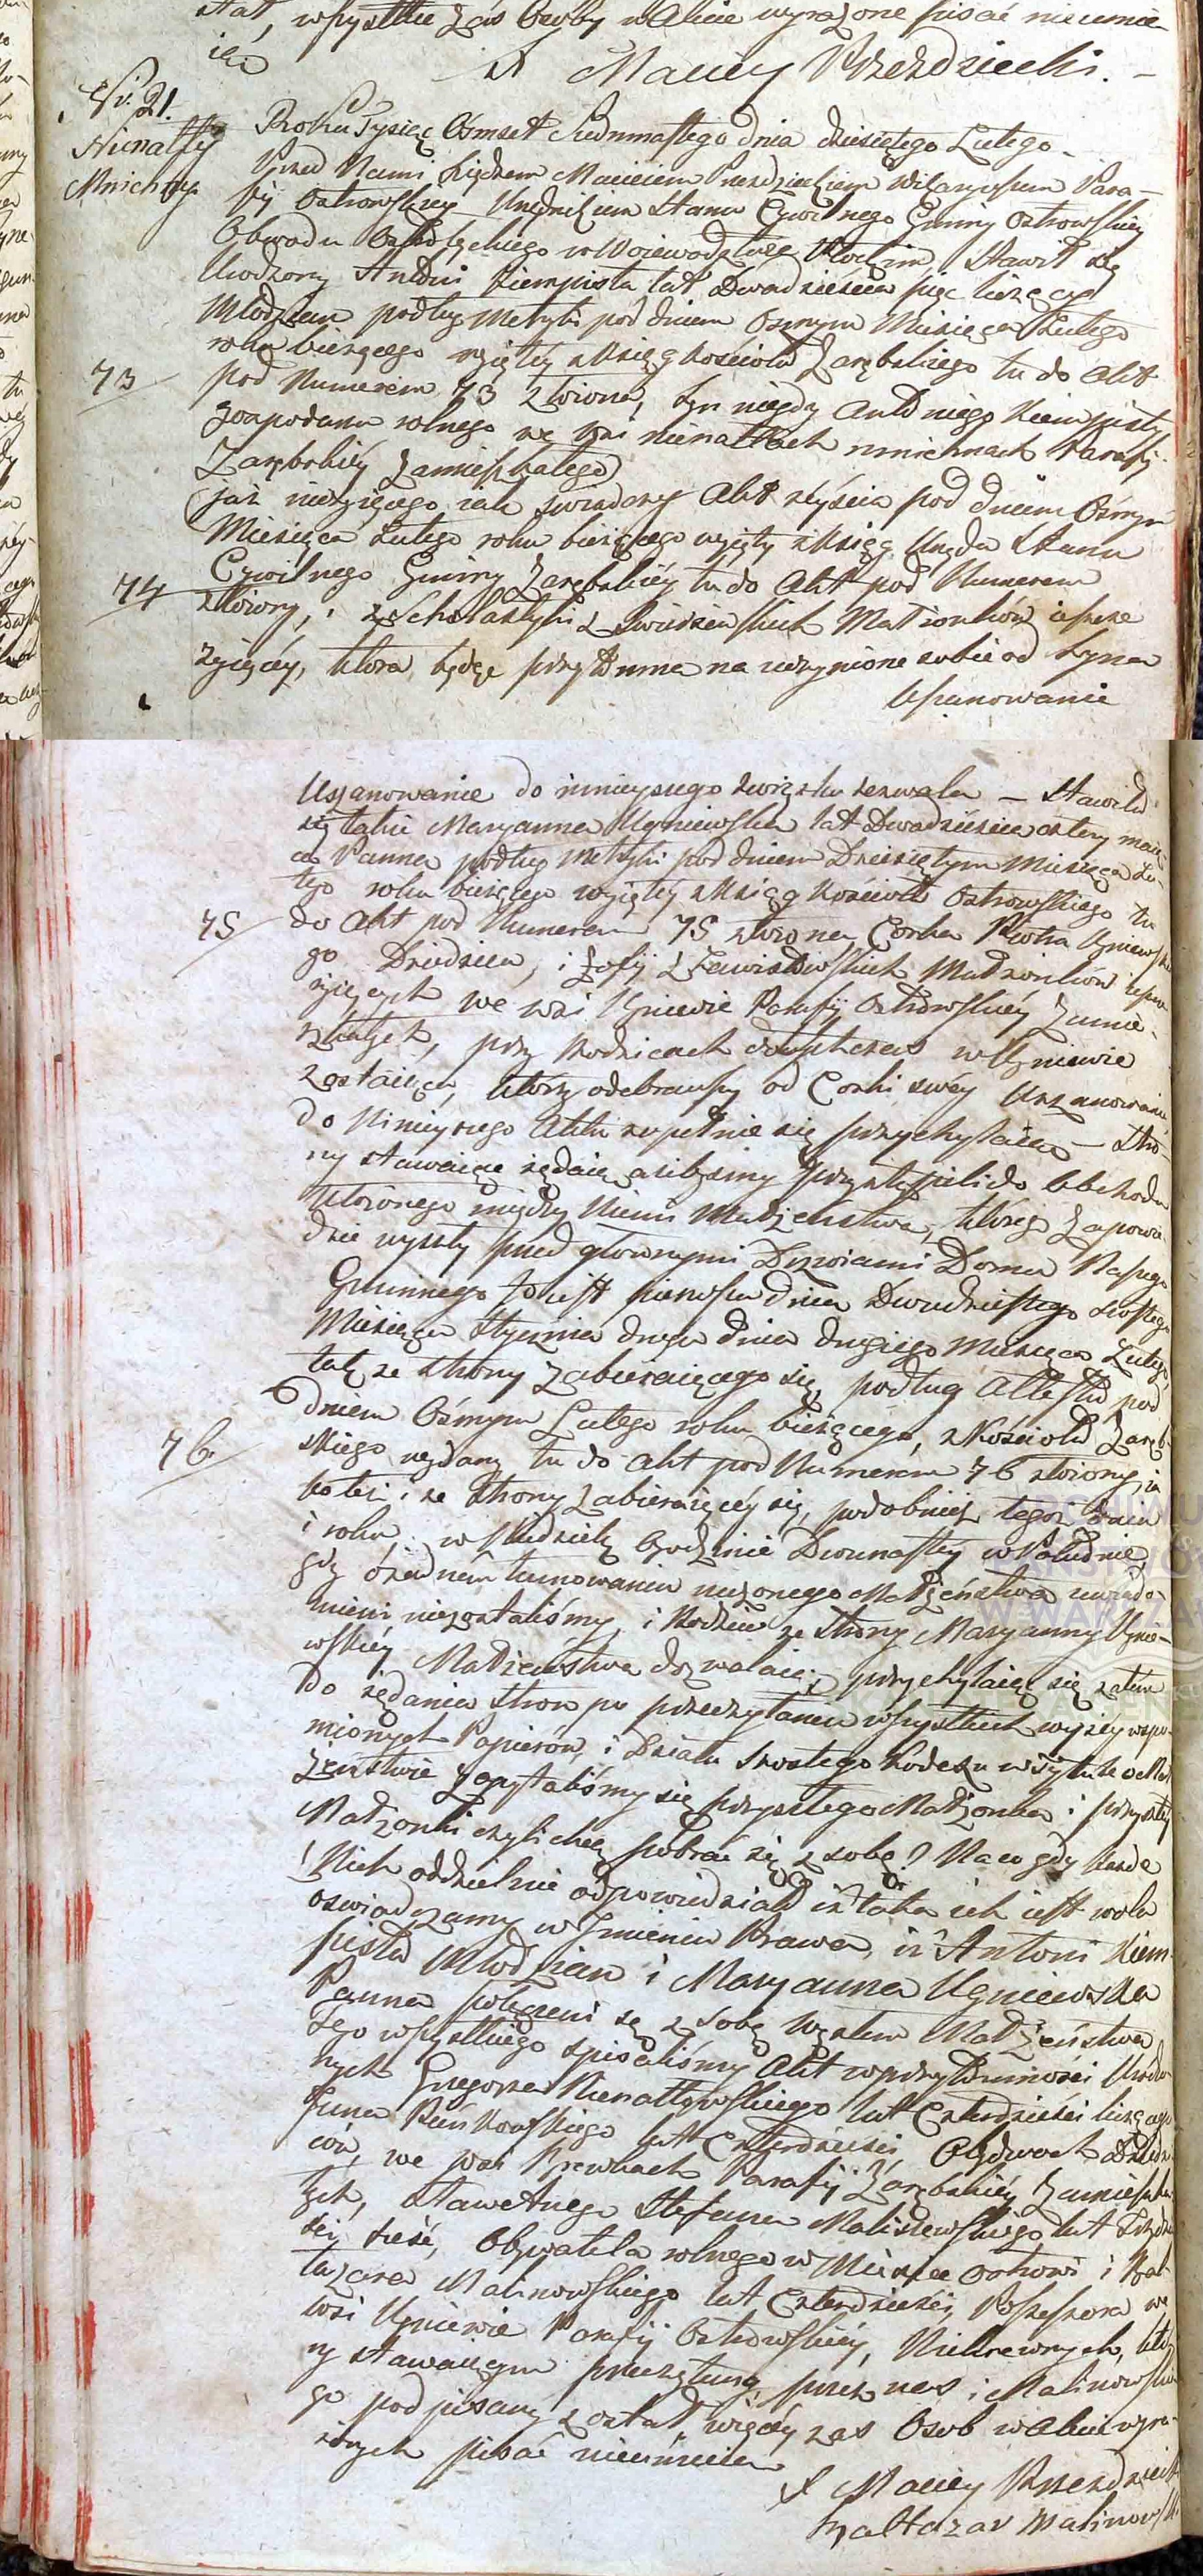 stał, wszystkie zaś Osoby w Akcie wyrażone pisać nieumie
ią
X Maciey Przezdziecki. -
Nr. 21.
Nienałty
Mnichy
Roku Tysiąc Ośmset Siedmnastego dnia dziesiątego Lutego -
Przed Nami Xiędzem Maciejem Przezdzieckiem Wikaryuszem Para -
fij Ostrowskiey Urzędnikiem Stanu Cywilnego Gminy Ostrowskiey
Obwodu Ostrołęckiego w Woiewodztwie Płockim Stawił się
Urodzony Antoni Kiempista lat Dwadzieścia pięć liczący
Młodzian podług Metryki pod dniem Osmym Miesiąca Lutego
roku bieżącego wyiętey z Xiąg kościoła Zarębskiego tu do Akt
73
pod Numerem 73 złożoną, syn niegdy Antoniego Kiempisty
gospodarza rolnego we wsi Nienałtach mnichach Parafij
Zarębskiéy Zamieszkałego
(już nieżyiącego iak świadczy Akt zeyścia pod dniem Ósmym
Miesiąca Lutego roku bieżącego wyięty z Xiąg Urzędu Stanu
Cywilnego Gminy Zarębskiéy tu do Akt pod Numerem
74
złożony, i z Scholastyki z Świerżewskich Małżonków ieszcze
żyiącéy, która będąc przytomna na uczynione sobie od Syna
Uszanowanie
Uszanowanie do ninieyszego związku zezwala - Stawiła
się także Maryanna Ugniewska lat Dwadzieścia cztery maią-
ca Panna podług Metryki pod dniem Dziesiątym Miesiąca Lu-
tego roku bieżącego wyiętéy z Xiąg kościoła Ostrowskiego tu
75
do Akt pod Numerem 75 złożona, Corka Piotra Ugniewskie
go Dziedzica, i Zofij z Zawistowskich Małżonków ieszcze
żyiących we wsi Ugniewie Parafij Ostrowskiéy Zamie-
szkałych, przy Rodzicach dotychczas w Ugniewie
zostaiąca, którzy odebrawszy od Corki swéy Uszanowanie
do Ninieyszego Aktu zupełnie się przychylaią - Stro-
ny stawaiące żądaią ażebyśmy przystąpili do Obchodu
Ułożonego między Niemi Małżeństwa, którego Zapowie
dzie wyszły przed głównymi Drzwiami Domu Naszego
Gminnego to iest pierwsza dnia Dwudziestego szóstego
Miesiąca Stycznia druga dnia drugiego Miesiąca Lutego
tak ze strony Zabieraiącego się, podług Attestu pod
dniem Ósmym Lutego roku bieżącego, z Kościoła Zaręb-
76
skiego wydany tu do Akt pod Numerem 76 złożony, ia
koteż i ze strony zabieraiącéy się, podobnież tegoż dnia
i roku, w Niedzielę Godzinie Dwunastey w Południe,
gdy o żadném tamowaniu rzeczonego Małżeństwa uwiado-
mieni niezostaliśmy, i Rodzice ze strony Maryanny Ugnie-
wskiéy Małżeństwa dozwalaią; przychylaiąc się zatem
do żądania stron po przeczytaniu wszystkich wyżéy wspo-
mionych Papierów, i Działu Szostego kodexu w tytule o Mał
żeństwie zapytaliśmy się przyszłego Małżonka i przyszłéy
Małżonki czyli chcą pobrać się z sobą? Na co gdy każde
z Nich oddzielnie odpowiedziało iż taka ich iest wola
oświadczamy w Imieniu Prawa, iż Antoni Kiem-
pista Młodzian i Maryanna Ugniewska
Panna połączeni są z sobą węzłem Małżeństwa
Tego wszystkiego spisaliśmy Akt w przytomności Urodzo-
nych Grzegorza Nienałtowskiego lat Czterdzieści liczącego
Jana Pieńkowskiego lat Czterdzieści Obydwóch Dziedzi-
ców, we wsi Parafij Zarębskiéy Zamieszka
łych, Sławetnego Stefana Maliszewskiego lat Trzydzie
ści sześć, Obywatela rolnego w Mieście Ostrowi i Bal-
tazara Malinowskiego lat Czterdzieści, Possessora we
wsi Ugniewie Parafij Ostrowskiéy, Niekrewnych, któ
ry stawaiącym przeczytany, przez nas i Malinowskie
go podpisany został, więcéy zaś Osob w Akcie wyra-
żonych pisać nieumieią
X Maciey Przezdziecki
Baltazar Malinowski
ARCHIWUM
PAŃSTWOWE
W WARSZAWIE